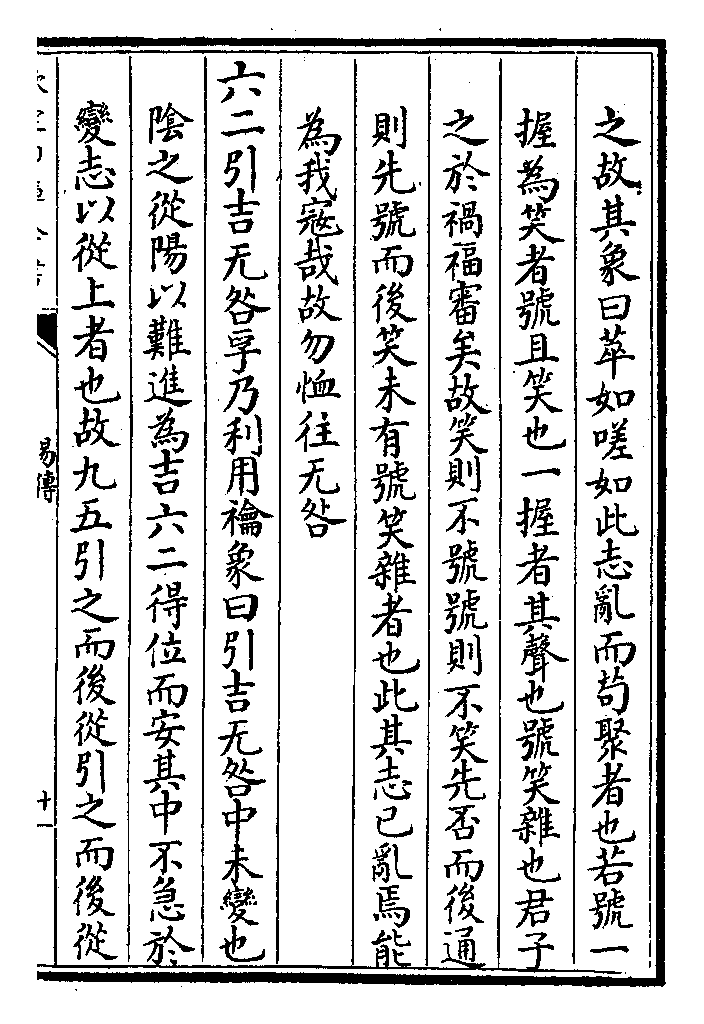 之故其象曰萃如嗟如此志亂而茍聚者也若號一
握為笑者號且笑也一握者其聲也號笑雜也君子
之於禍福審矣故笑則不號號則不笑先否而後通
則先號而後笑未有號笑雜者也此其志已亂焉能
為我寇哉故勿恤往无咎
六二引吉无咎孚乃利用禴象曰引吉无咎中未變也
陰之從陽以難進為吉六二得位而安其中不急於
變志以從上者也故九五引之而後從引之而後從
易傳
十一